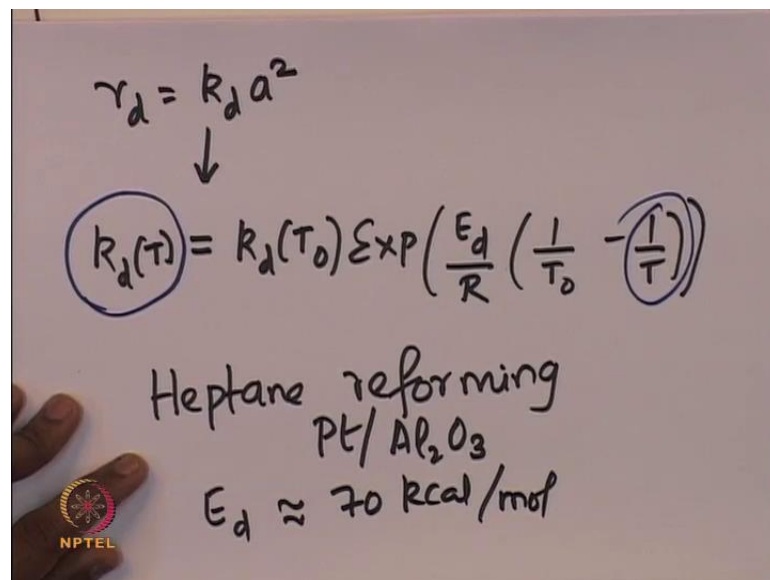 r_d = k_d a²
↓
k_d(T) = k_d(T₀) Exp(E_d/R (1/T₀ - 1/T))
Heptane reforming
Pt/Al₂O₃
E_d ≈ 70 kcal/mol
NPTEL